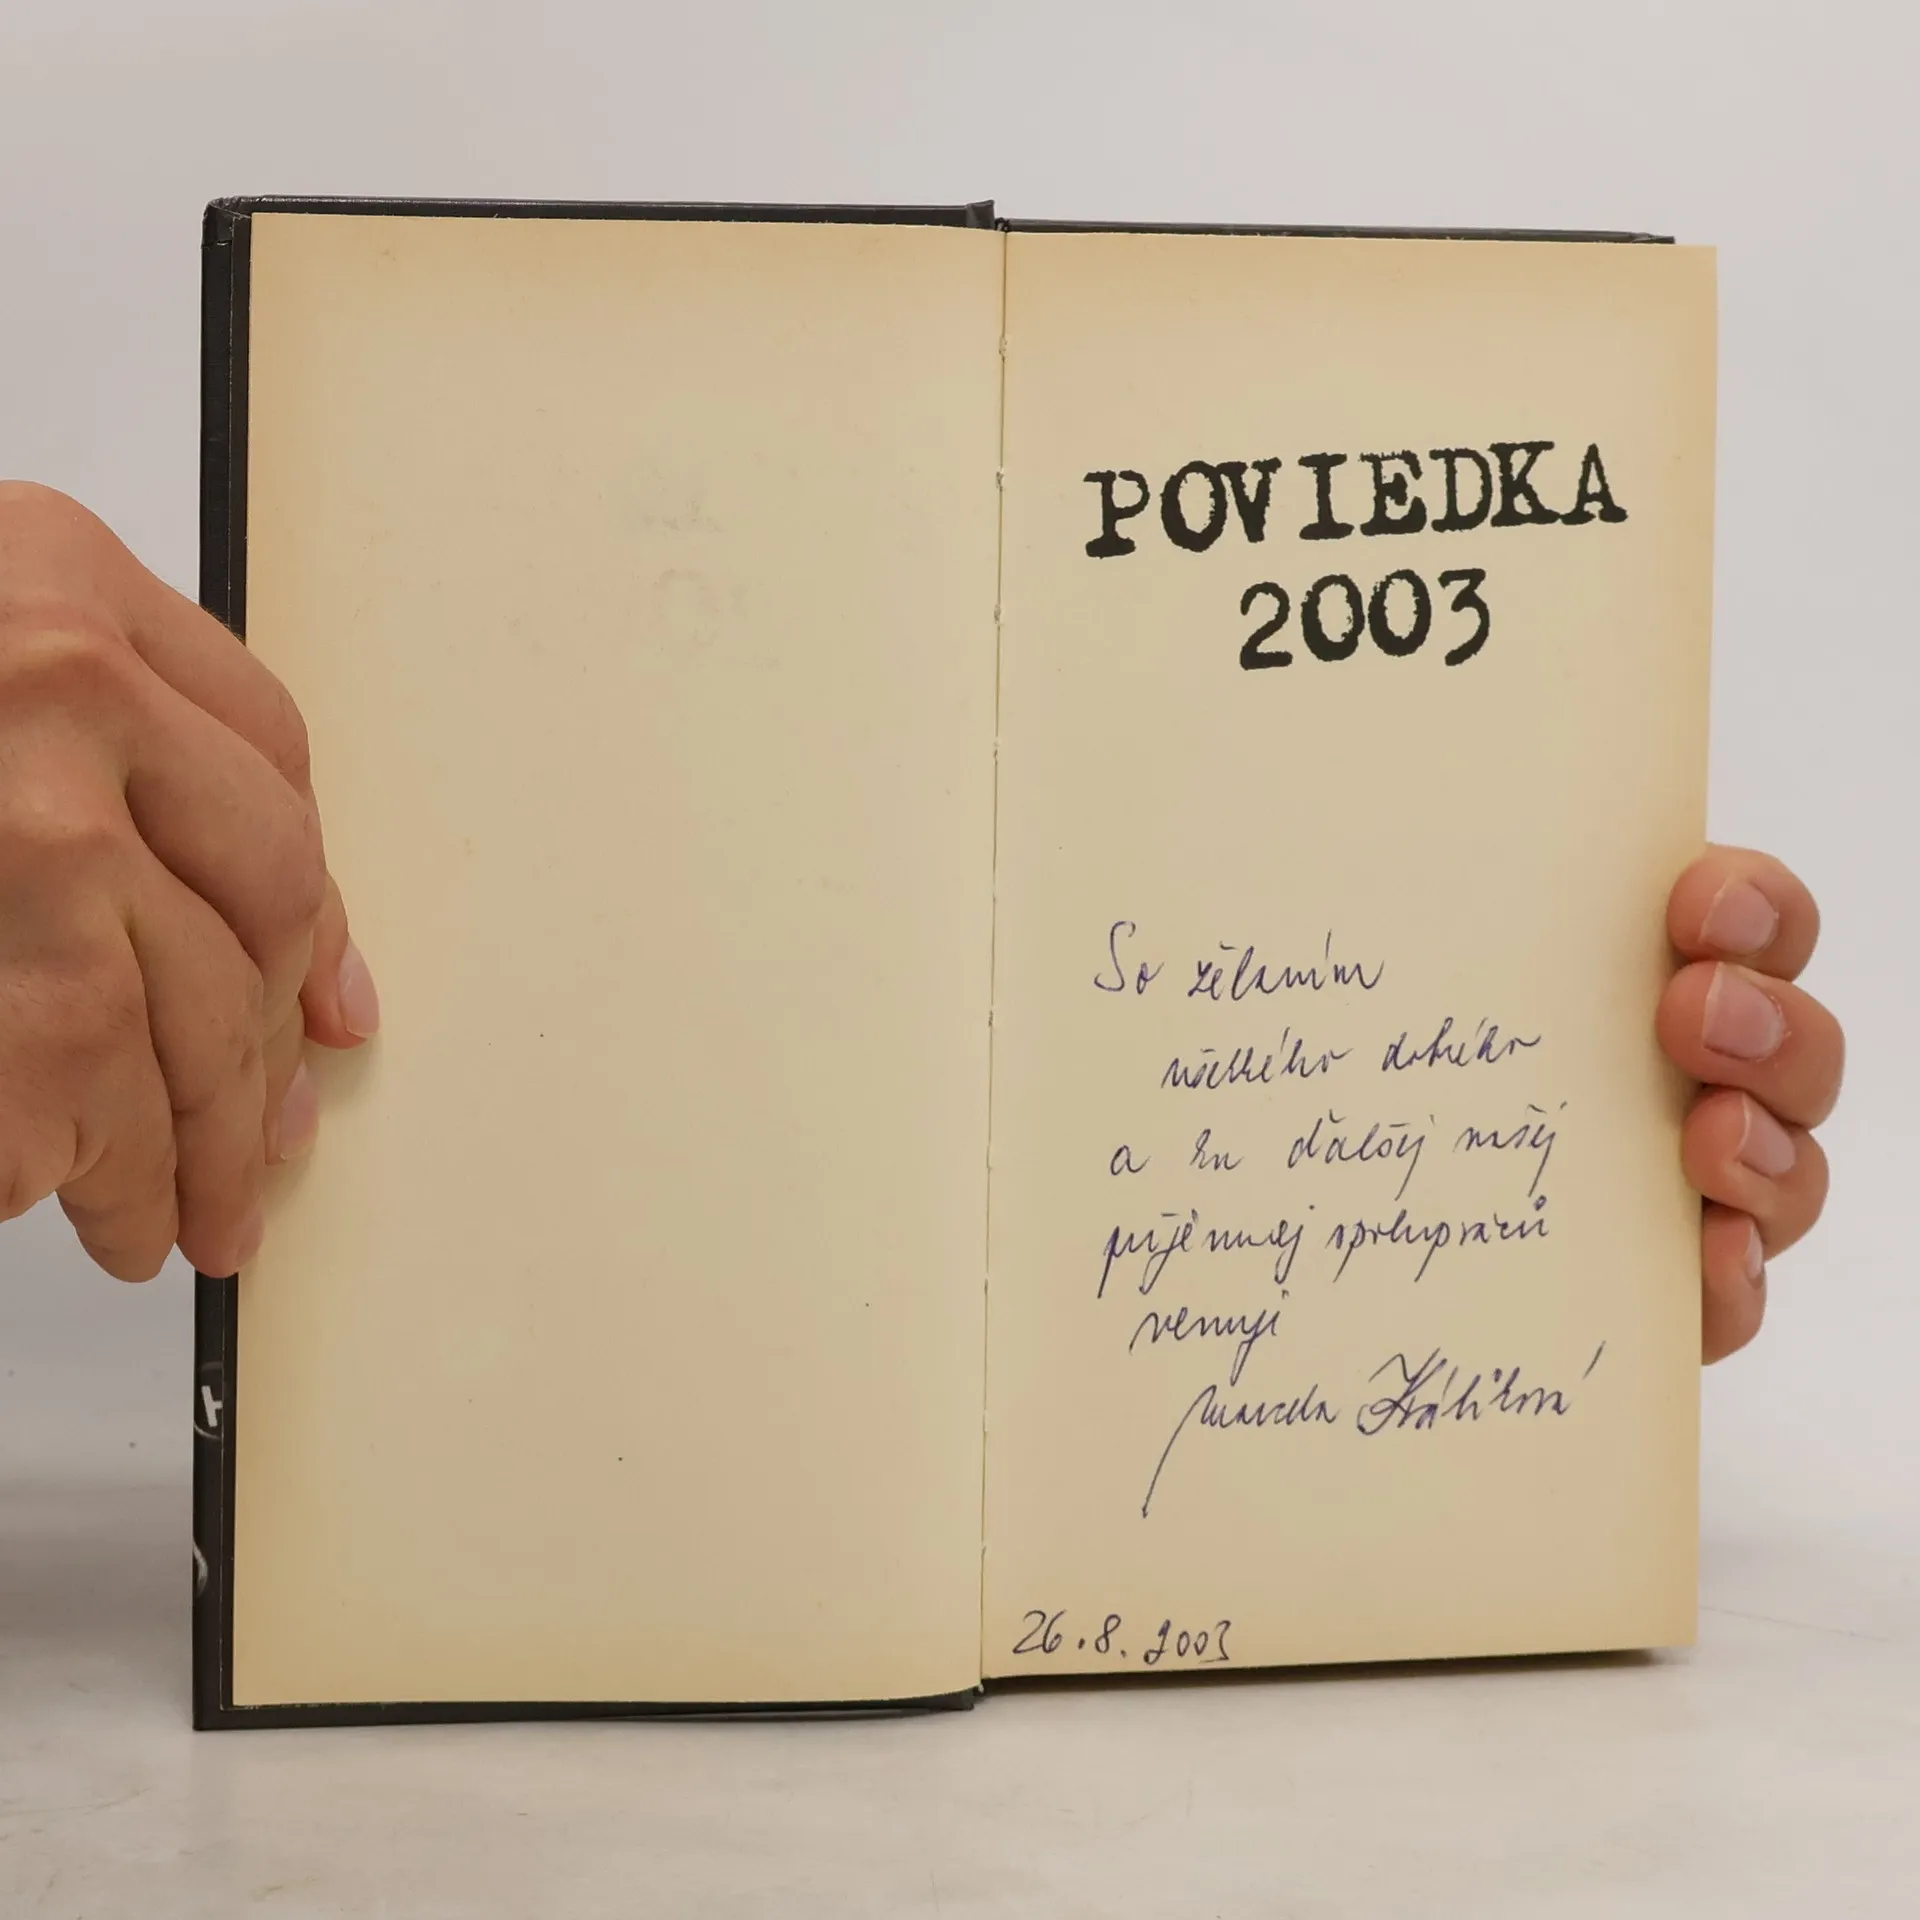 POVIEDKA
2003
So želaním
všetkého dobrého
a ku ďalšej našej
príjemnej spolupráci
venuje
Marcela
26.8.2003